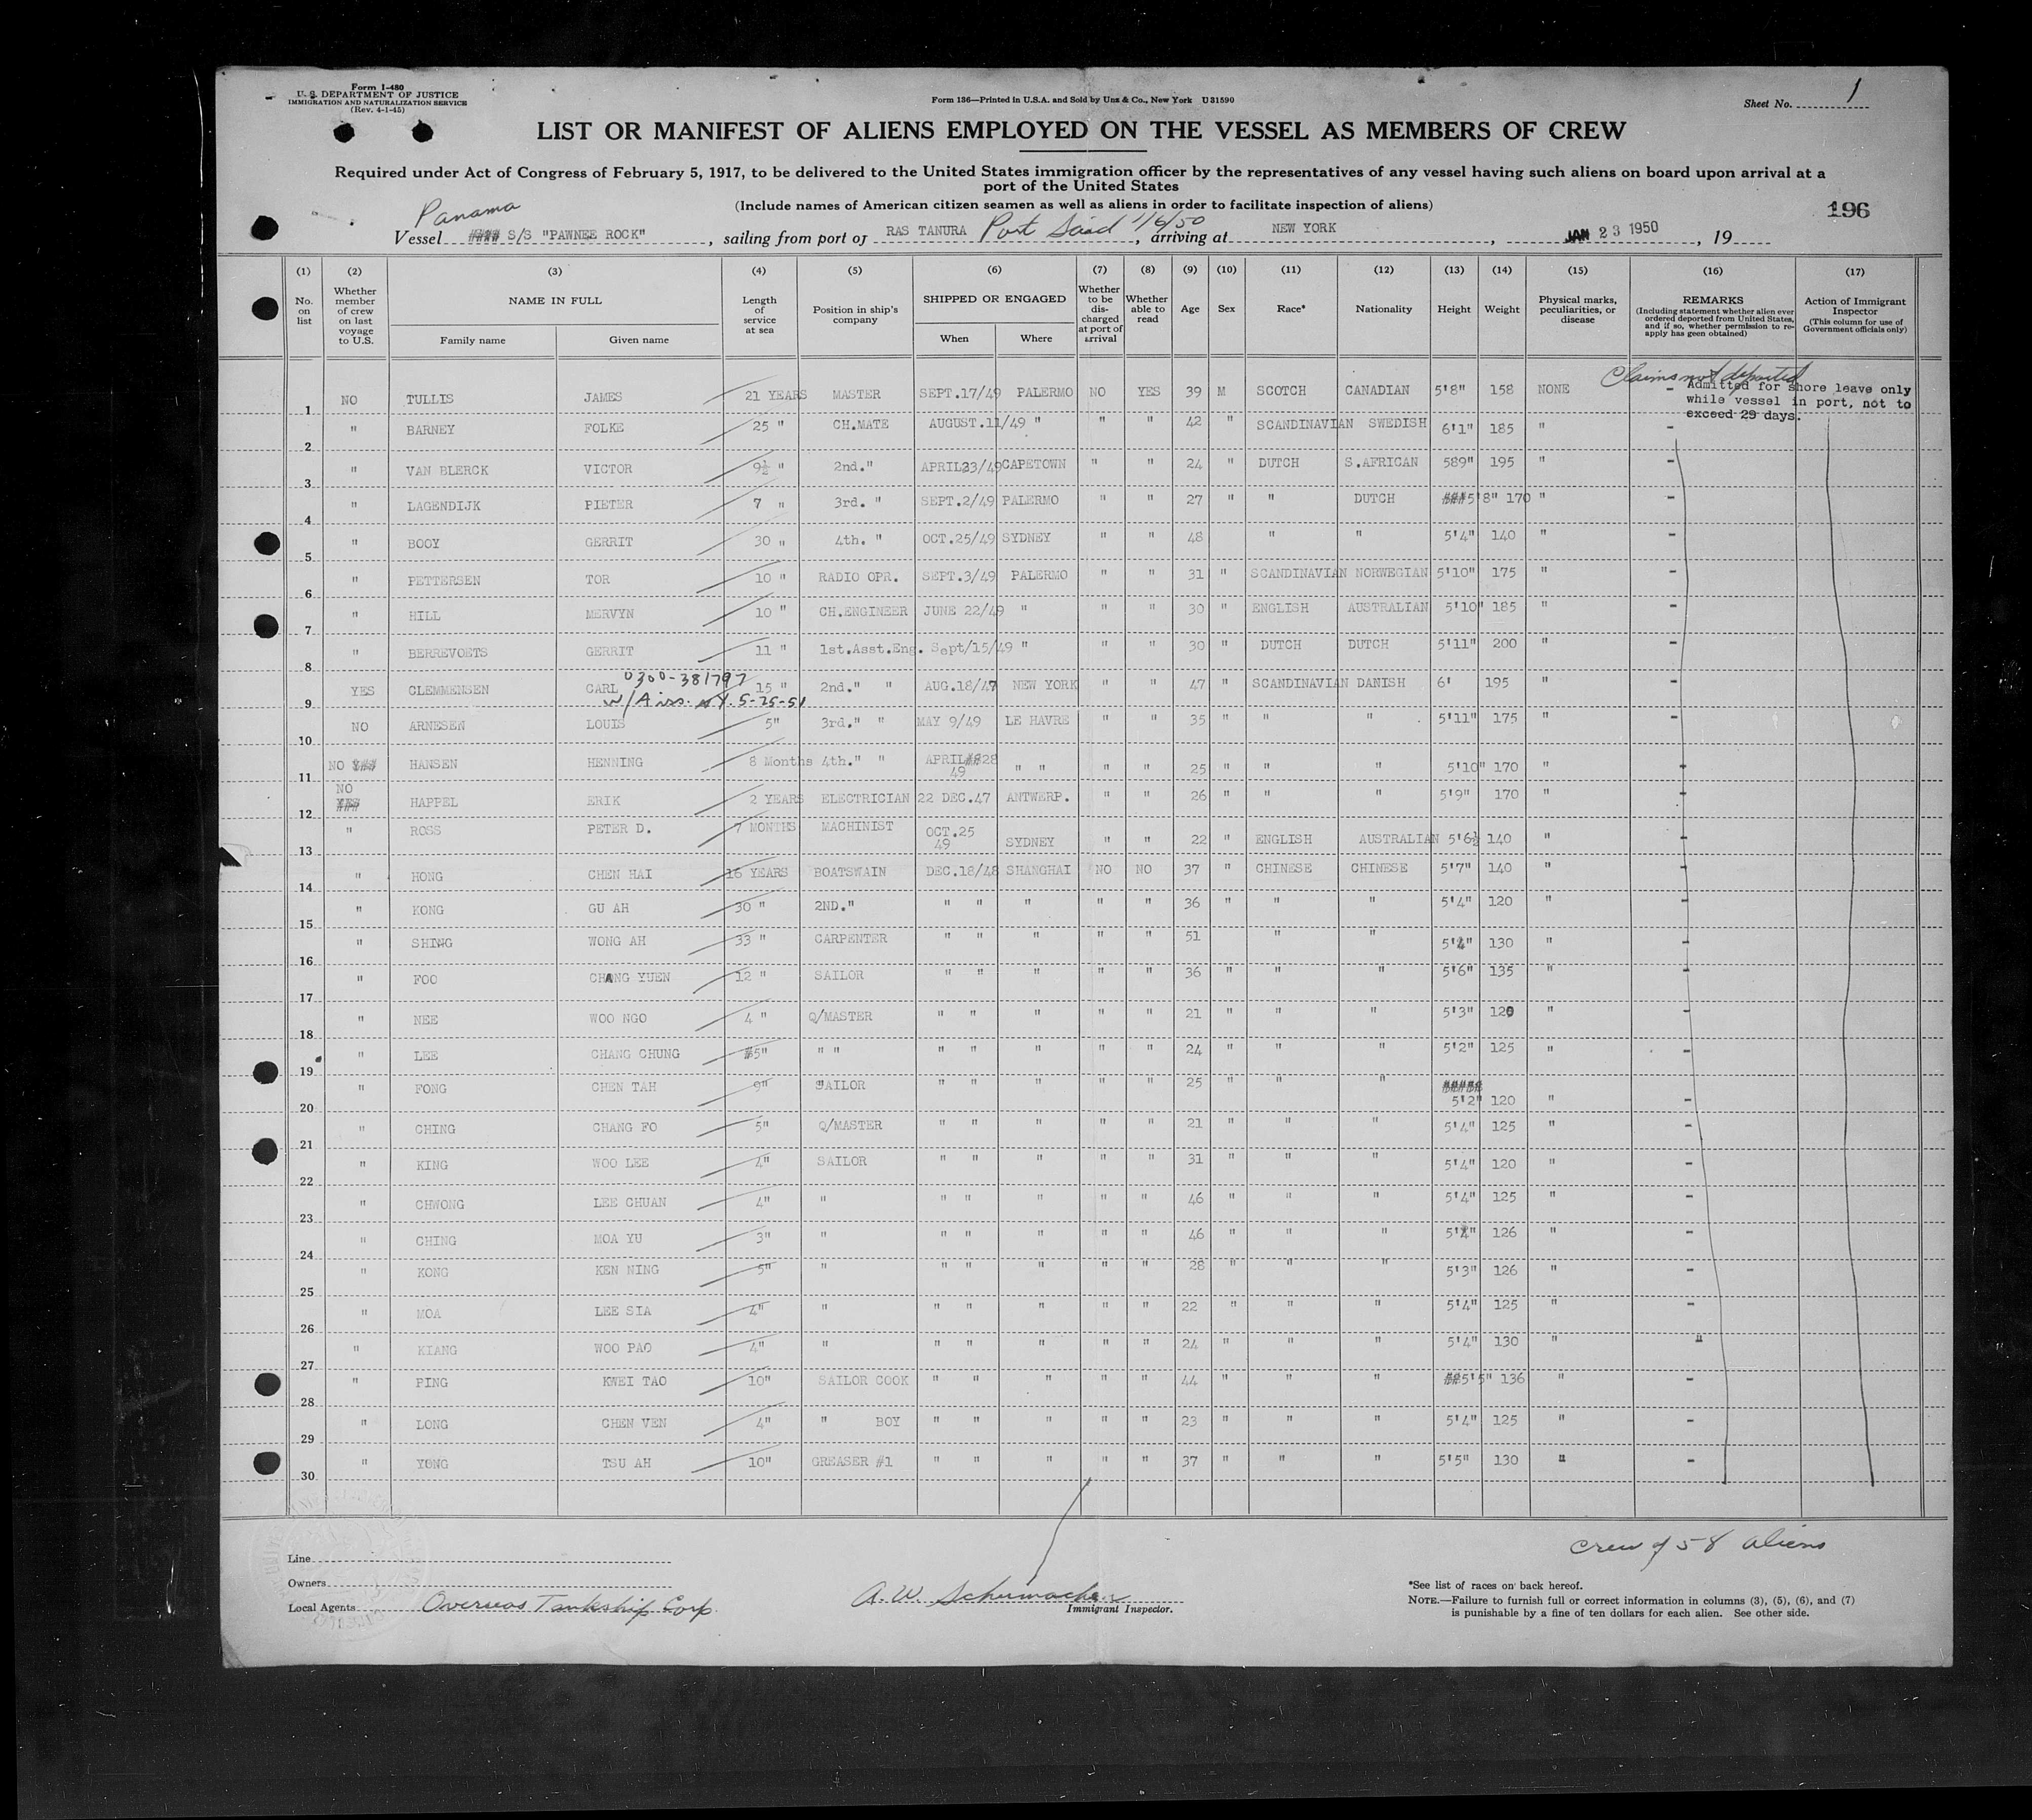 Form I-480
U. S. DEPARTMENT OF JUSTICE
IMMIGRATION AND NATURALIZATION SERVICE
(Rev. 4-1-45)
Form 136—Printed in U.S.A. and Sold by Unz & Co., New York U31590
Sheet No. 1
LIST OR MANIFEST OF ALIENS EMPLOYED ON THE VESSEL AS MEMBERS OF CREW
Required under Act of Congress of February 5, 1917, to be delivered to the United States immigration officer by the representatives of any vessel having such aliens on board upon arrival at a
port of the United States
(Include names of American citizen seamen as well as aliens in order to facilitate inspection of aliens)
196
Panama
Vessel #### S/S "PAWNEE ROCK", sailing from port of RAS TANURA Port Said 1/6/50, arriving at NEW YORK, JAN 23 1950, 19
(1) (2) (3) (4) (5) (6) (7) (8) (9) (10) (11) (12) (13) (14) (15) (16) (17)
No. on list
Whether member of crew on last voyage to U.S.
NAME IN FULL
Family name Given name
Length of service at sea
Position in ship's company
SHIPPED OR ENGAGED
When Where
Whether to be discharged at port of arrival
Whether able to read
Age Sex Race* Nationality Height Weight
Physical marks, peculiarities, or disease
REMARKS
(Including statement whether alien ever ordered deported from United States, and if so, whether permission to reapply has geen obtained)
Action of Immigrant Inspector
(This column for use of Government officials only)
Claims not deported
Admitted for shore leave only
while vessel in port, not to
exceed 29 days.
1 NO TULLIS JAMES 21 YEARS MASTER SEPT.17/49 PALERMO NO YES 39 M SCOTCH CANADIAN 5'8" 158 NONE -
2 " BARNEY FOLKE 25 " CH.MATE AUGUST.11/49 " " " 42 " SCANDINAVIAN SWEDISH 6'1" 185 " -
3 " VAN BLERCK VICTOR 9½ " 2nd." APRIL23/49 CAPETOWN " " 24 " DUTCH S.AFRICAN 589" 195 " -
4 " LAGENDIJK PIETER 7 " 3rd. " SEPT.2/49 PALERMO " " 27 " " DUTCH ###5'8" 170 " -
5 " BOOY GERRIT 30 " 4th. " OCT.25/49 SYDNEY " " 48 " " 5'4" 140 " -
6 " PETTERSEN TOR 10 " RADIO OPR. SEPT.3/49 PALERMO " " 31 " SCANDINAVIAN NORWEGIAN 5'10" 175 " -
7 " HILL MERVYN 10 " CH.ENGINEER JUNE 22/49 " " " 30 " ENGLISH AUSTRALIAN 5'10" 185 " -
8 " BERREVOETS GERRIT 11 " 1st.Asst.Eng. Sept/15/49 " " " 30 " DUTCH DUTCH 5'11" 200 " -
0300-381797
9 YES CLEMMENSEN CARL 15 " 2nd." " AUG.18/47 NEW YORK " " 47 " SCANDINAVIAN DANISH 6' 195 " -
w/A iss. N.Y. 5-25-51
10 NO ARNESEN LOUIS 5" 3rd." " MAY 9/49 LE HAVRE " " 35 " " " 5'11" 175 " -
11 NO ### HANSEN HENNING 8 Months 4th." " APRIL##28 49 " " " " 25 " " " 5'10" 170 " -
12 NO YES HAPPEL ERIK 2 YEARS ELECTRICIAN 22 DEC.47 ANTWERP. " " 26 " " " 5'9" 170 " -
13 " ROSS PETER D. 7 MONTHS MACHINIST OCT.25 49 SYDNEY " " 22 " ENGLISH AUSTRALIAN 5'6½ 140 " -
14 " HONG CHEN HAI 16 YEARS BOATSWAIN DEC.18/48 SHANGHAI NO NO 37 " CHINESE CHINESE 5'7" 140 " -
15 " KONG GU AH 30 " 2ND." " " " " " 36 " " " 5'4" 120 " -
16 " SHING WONG AH 33 " CARPENTER " " " " " 51 " " 5'4" 130 " -
17 " FOO CHANG YUEN 12 " SAILOR " " " " " 36 " " " 5'6" 135 " -
18 " NEE WOO NGO 4 " Q/MASTER " " " " " 21 " " " 5'3" 120 " -
19 " LEE CHANG CHUNG #5" " " " " " " " 24 " " " 5'2" 125 " -
20 " FONG CHEN TAH 9" SAILOR " " " " " 25 " " " ##### 5'2" 120 " -
21 " CHING CHANG FO 5" Q/MASTER " " " " " 21 " " " 5'4" 125 " -
22 " KING WOO LEE 4" SAILOR " " " " " 31 " " " 5'4" 120 " -
23 " CHWONG LEE CHUAN 4" " " " " " " 46 " " " 5'4" 125 " -
24 " CHING MOA YU 3" " " " " " " 46 " " " 5'4" 126 " -
25 " KONG KEN NING 5" " " " " " " 28 " " " 5'3" 126 " -
26 " MOA LEE SIA 4" " " " " " " 22 " " " 5'4" 125 " -
27 " KIANG WOO PAO 4" " " " " " " 24 " " " 5'4" 130 " "
28 " PING KWEI TAO 10" SAILOR COOK " " " " " 44 " " " ##5'5" 136 " -
29 " LONG CHEN VEN 4" " BOY " " " " " 23 " " " 5'4" 125 " -
30 " YONG TSU AH 10" GREASER #1 " " " " " 37 " " " 5'5" 130 " -
crew of 58 aliens
Line
Owners
Local Agents Overseas Tankship Corp.
A.W. Schumacher
Immigrant Inspector.
*See list of races on back hereof.
NOTE.—Failure to furnish full or correct information in columns (3), (5), (6), and (7)
is punishable by a fine of ten dollars for each alien. See other side.